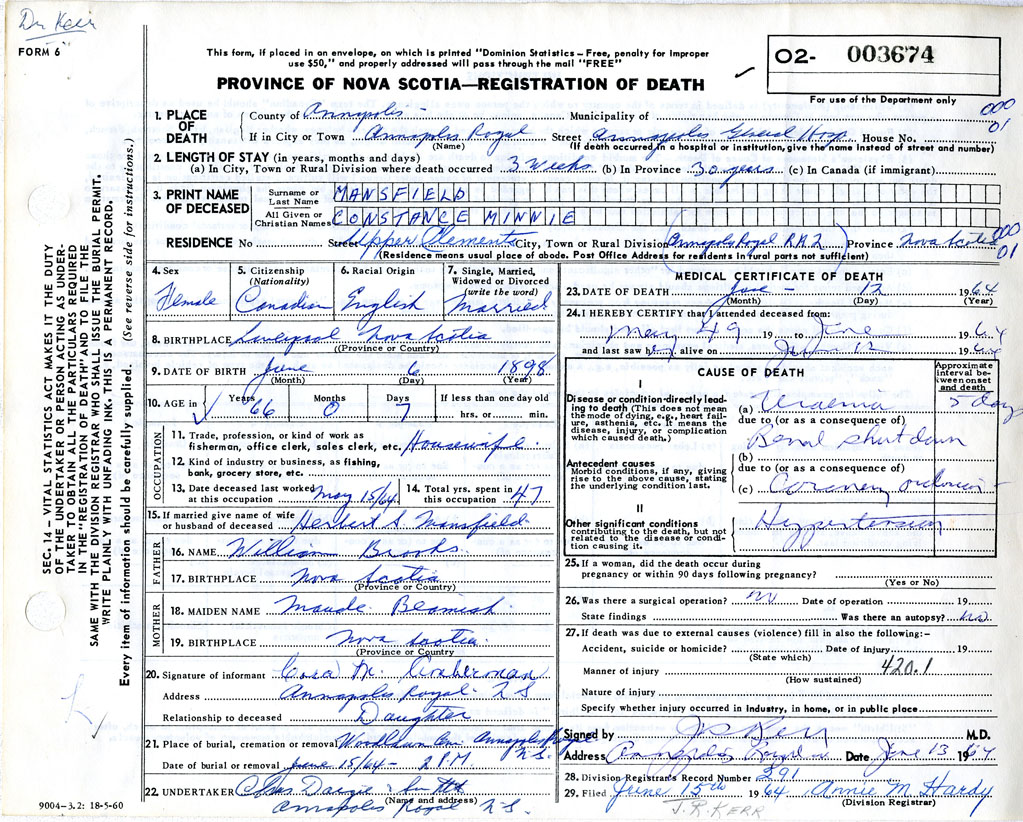 Dr Kerr
FORM 6
This form, if placed in an envelope, on which is printed "Dominion Statistics – Free, penalty for improper
use $50," and properly addressed will pass through the mail "FREE"
PROVINCE OF NOVA SCOTIA—REGISTRATION OF DEATH
O2- 003674
For use of the Department only
1. PLACE OF DEATH
County of Annapolis Municipality of
000
01
If in City or Town Annapolis Royal Street Annapolis General Hosp. House No.
(Name) (If death occurred in a hospital or institution, give the name instead of street and number)
2 LENGTH OF STAY (in years, months and days)
(a) In City, Town or Rural Division where death occurred 3 weeks (b) In Province 30 years (c) In Canada (if immigrant)
3. PRINT NAME OF DECEASED
Surname or Last Name MANSFIELD
All Given or Christian Names CONSTANCE MINNIE
RESIDENCE No Street Upper Clements City, Town or Rural Division (Annapolis Royal R.R.2) Province Nova Scotia
000
01
(Residence means usual place of abode. Post Office Address for residents in rural parts not sufficient)
4. Sex Female
5. Citizenship (Nationality) Canadian
6. Racial Origin English
7. Single, Married, Widowed or Divorced (write the word) Married
8. BIRTHPLACE Liverpool Nova Scotia
(Province or Country)
9. DATE OF BIRTH June 6 1898
(Month) (Day) (Year)
10. AGE in Years 66 Months 0 Days 7 If less than one day old hrs. or min.
OCCUPATION
11. Trade, profession, or kind of work as
fisherman, office clerk, sales clerk, etc. Housewife
12. Kind of industry or business, as fishing,
bank, grocery store, etc.
13. Date deceased last worked at this occupation May 15/64
14. Total yrs. spent in this occupation 47
15. If married give name of wife
or husband of deceased Herbert S. Mansfield
FATHER
16. NAME William Brooks
17. BIRTHPLACE Nova Scotia
(Province or Country)
MOTHER
18. MAIDEN NAME Maude Beamish
19. BIRTHPLACE Nova Scotia
(Province or Country
20. Signature of informant Cora M.
Address Annapolis Royal NS
Relationship to deceased Daughter
21. Place of burial, cremation or removal Woodlawn Annapolis Royal N.S.
Date of burial or removal June 15/64 – 2 PM
22. UNDERTAKER
(Name and address)
Annapolis Royal N.S.
9004–3.2: 18-5-60
MEDICAL CERTIFICATE OF DEATH
23. DATE OF DEATH June – 12 1964
(Month) (Day) (Year)
24. I HEREBY CERTIFY that I attended deceased from:
May 49 19 June 1964
and last saw her alive on June 12 1964
CAUSE OF DEATH
Approximate interval between onset and death
I
Disease or condition directly leading to death (This does not mean the mode of dying, e.g., heart failure, asthenia, etc. It means the disease, injury, or complication which caused death.)
(a) Uraemia 5 days
due to (or as a consequence of)
Renal shut down
Antecedent causes
Morbid conditions, if any, giving rise to the above cause, stating the underlying condition last.
(b)
due to (or as a consequence of)
(c) Coronary occlusion
II
Other significant conditions
contributing to the death, but not related to the disease or condition causing it.
Hypertension
25. If a woman, did the death occur during
pregnancy or within 90 days following pregnancy?
(Yes or No)
26. Was there a surgical operation? no Date of operation 19
State findings Was there an autopsy? no
27. If death was due to external causes (violence) fill in also the following:–
Accident, suicide or homicide? Date of injury 19
(State which)
Manner of injury 420.1
(How sustained)
Nature of injury
Specify whether injury occurred in industry, in home, or in public place
Signed by J R Kerr M.D.
Address Annapolis Royal Date June 13 1964
28. Division Registrar's Record Number 391
29. Filed June 15th 1964 Annie M Hardy
(Division Registrar)
J.R. KERR
SEC. 14 – VITAL STATISTICS ACT MAKES IT THE DUTY
OF THE UNDERTAKER OR PERSON ACTING AS UNDERTAKER
TO OBTAIN ALL THE PARTICULARS REQUIRED
IN THE "REGISTRATION OF DEATH" AND TO FILE THE
SAME WITH THE DIVISION REGISTRAR WHO SHALL ISSUE THE BURIAL PERMIT.
WRITE PLAINLY WITH UNFADING INK. THIS IS A PERMANENT RECORD.
Every item of information should be carefully supplied. (See reverse side for instructions.)